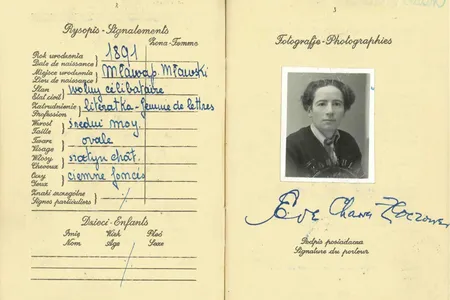 2
Rysopis - Signalements
Żona - Femme
Rok urodzenia
Date de naissance
1891
Miejsce urodzenia
Lieu de naissance
Mława p. Mławski
Stan
Etat civil
wolny célibataire
Zatrudnienie
Profession
literatka - femme de lettres
Wzrost
Taille
średni moy.
Twarz
Visage
ovale
Włosy
Cheveux
szatyn chât.
Oczy
Yeux
ciemne foncés
Znaki szczególne
Signes particuliers
Dzieci - Enfants
Imię Wiek Płeć
Nom Age Sexe
3
Fotografje - Photographies
Chawa
Podpis posiadacza
Signature du porteur